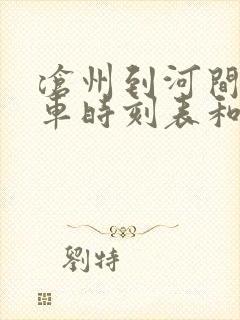 滄州到河間
車時刻表和
劉特